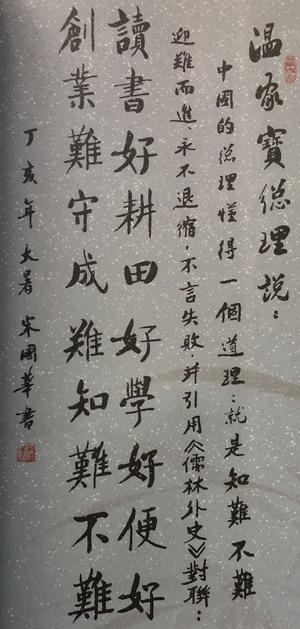 温家寶總理說：
中國的總理懂得一個道理：就是知難不難
迎難而進、永不退縮，不言失敗，并引用《儒林外史》對聯：
讀書好耕田好學好便好
創業難守成難知難不難
丁亥年大暑宋國華書